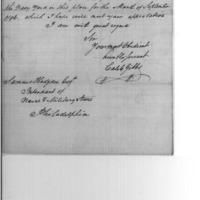 the Navy Yard in this place for the Month of September
1796, which I hope will meet your approbation
I am with great respect
Sir
Your most Obedient
humble Servant
Caleb Gibbs
Samuel Hodgdon Esqr
Intendant of
Naval & Military Stores
Philadelphia